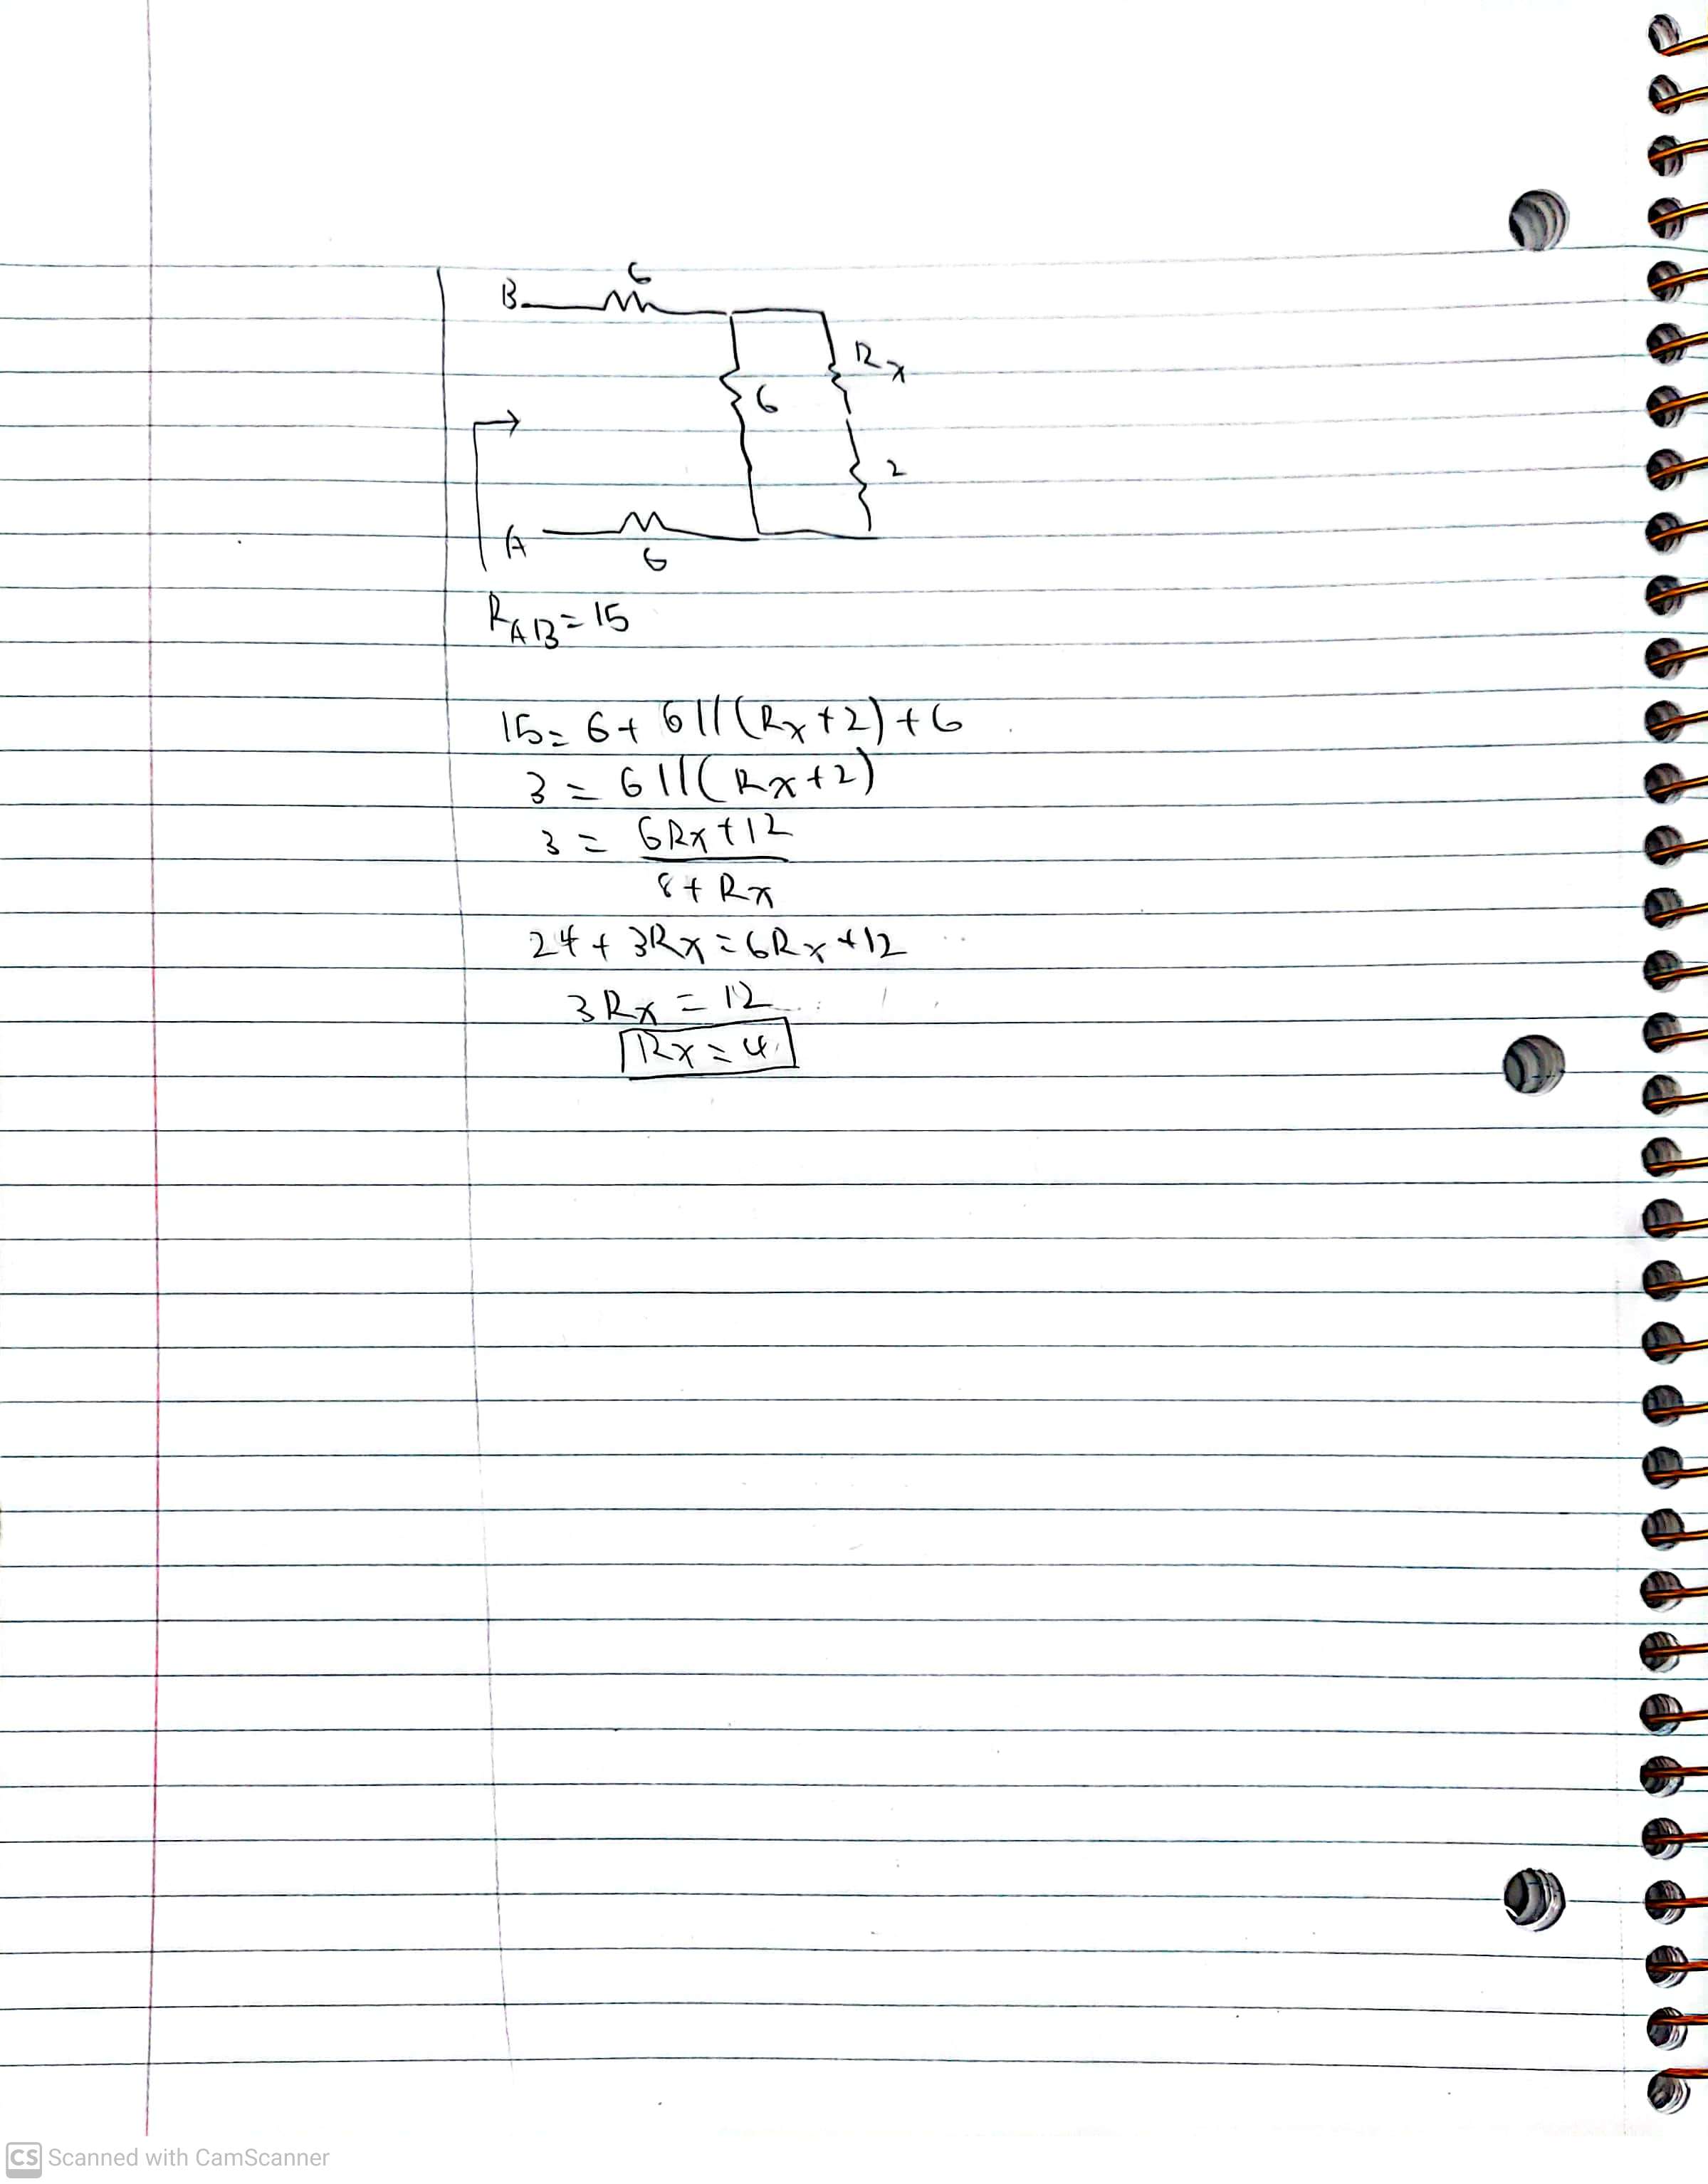 B 6
Rx
6
2
A 6
RAB = 15
15 = 6 + 6 || (Rx + 2) + 6
3 = 6 || (Rx + 2)
3 = 6Rx + 12
8 + Rx
24 + 3Rx = 6Rx + 12
3Rx = 12
Rx = 4
CS Scanned with CamScanner